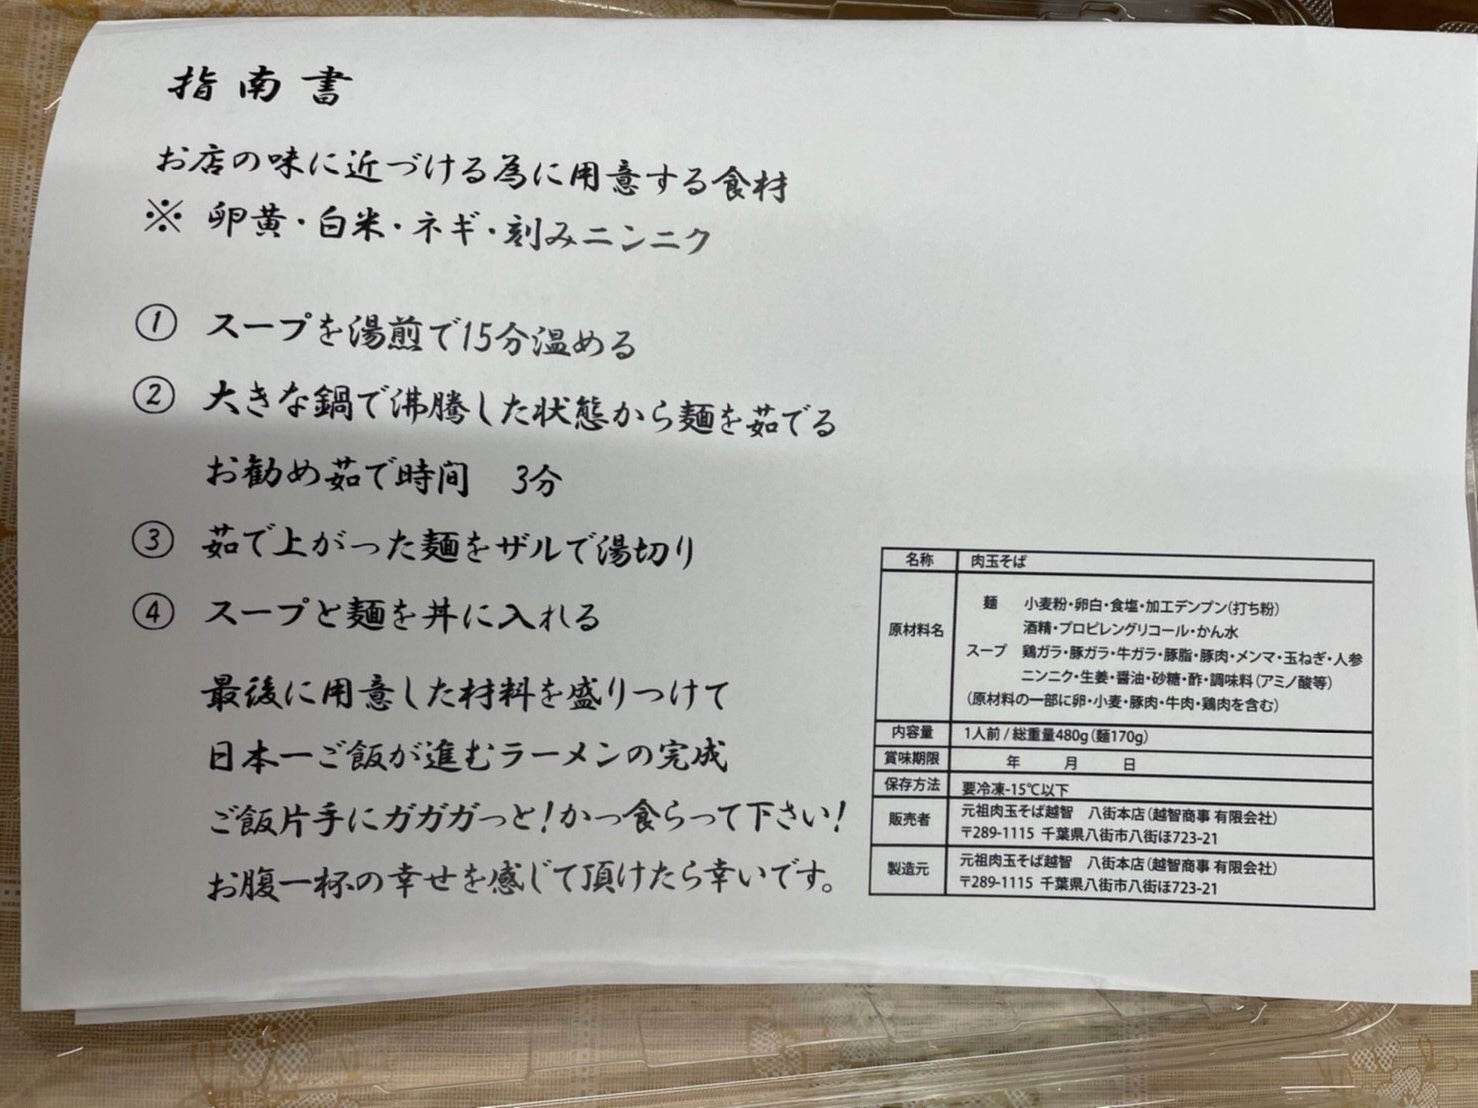 指南書
お店の味に近づける為に用意する食材
※ 卵黄・白米・ネギ・刻みニンニク
① スープを湯煎で15分温める
② 大きな鍋で沸騰した状態から麺を茹でる
お勧め茹で時間 3分
③ 茹で上がった麺をザルで湯切り
④ スープと麺を丼に入れる
最後に用意した材料を盛りつけて
日本一ご飯が進むラーメンの完成
ご飯片手にガガガっと!かっ食らって下さい!
お腹一杯の幸せを感じて頂けたら幸いです。
名称 肉玉そば
原材料名
麺 小麦粉・卵白・食塩・加工デンプン(打ち粉)
酒精・プロピレングリコール・かん水
スープ 鶏ガラ・豚ガラ・牛ガラ・豚脂・豚肉・メンマ・玉ねぎ・人参
ニンニク・生姜・醤油・砂糖・酢・調味料(アミノ酸等)
(原材料の一部に卵・小麦・豚肉・牛肉・鶏肉を含む)
内容量 1人前/総重量480g(麺170g)
賞味期限 年 月 日
保存方法 要冷凍-15℃以下
販売者 元祖肉玉そば越智 八街本店(越智商事 有限会社)
〒289-1115 千葉県八街市八街ほ723-21
製造元 元祖肉玉そば越智 八街本店(越智商事 有限会社)
〒289-1115 千葉県八街市八街ほ723-21